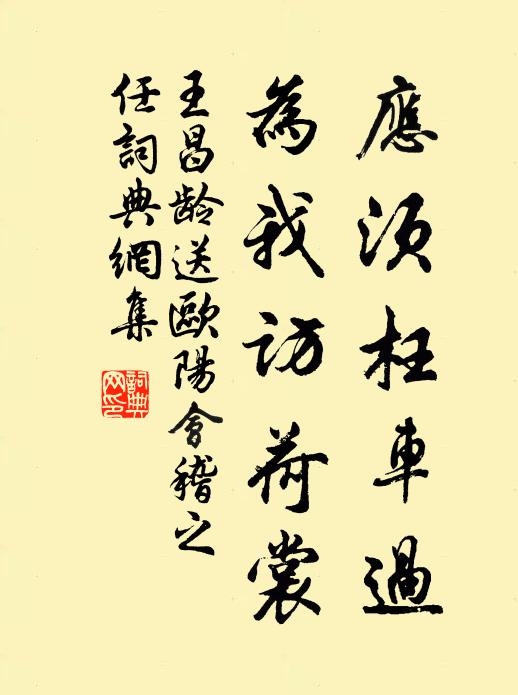 應須枉車過
為我訪荷裳
王昌龄送歐陽會稽之
任詞典網集
詞典
网印